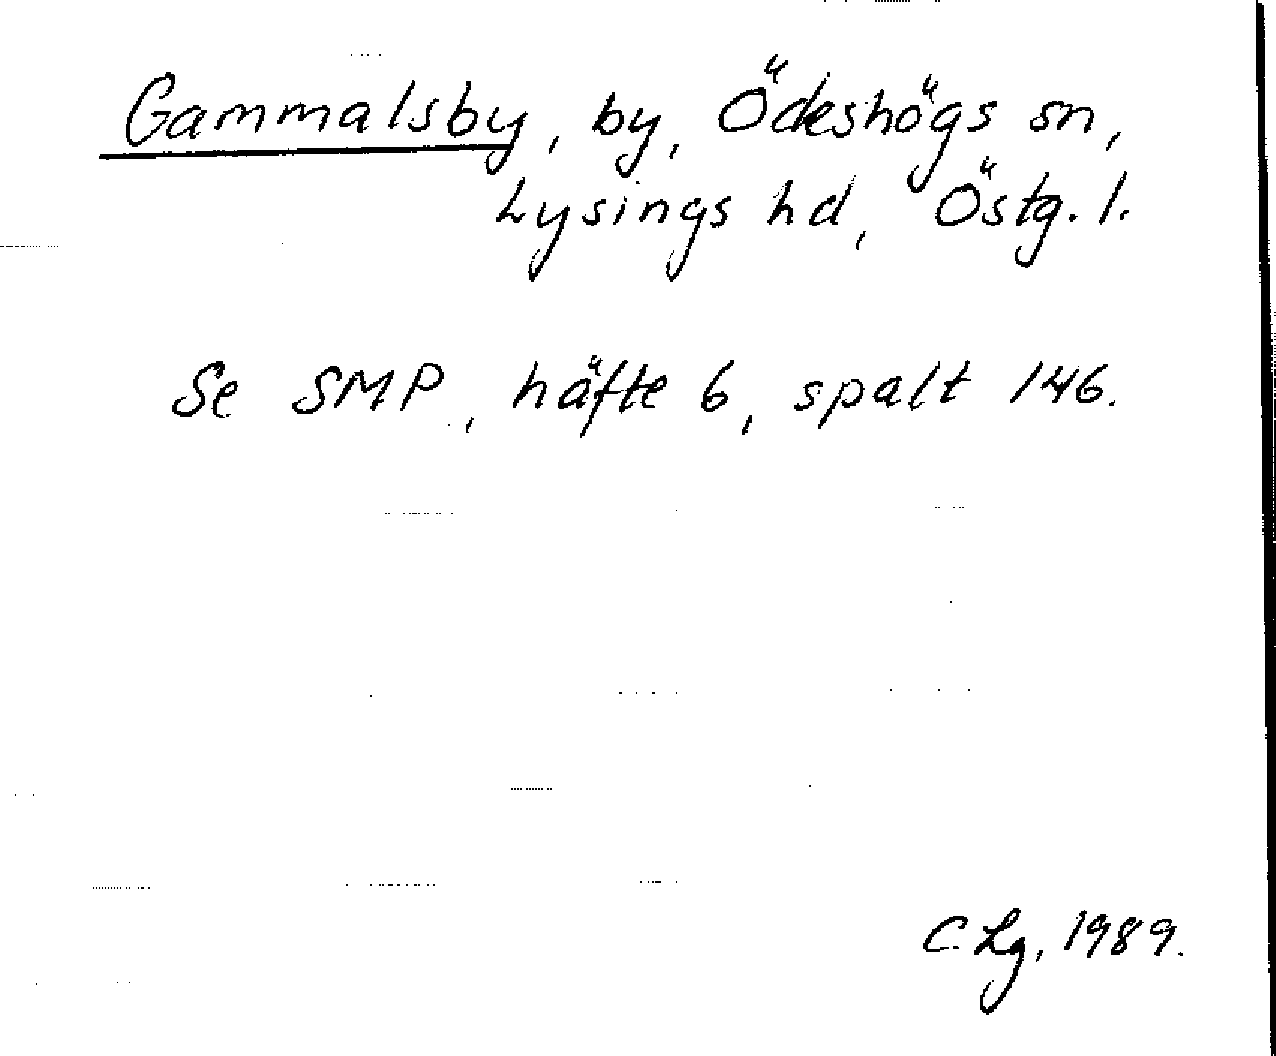 Gammalsby, by, Ödeshögs sn,
Lysings hd, Östg. l.
Se SMP, häfte 6, spalt 146.
C. Lg, 1989.